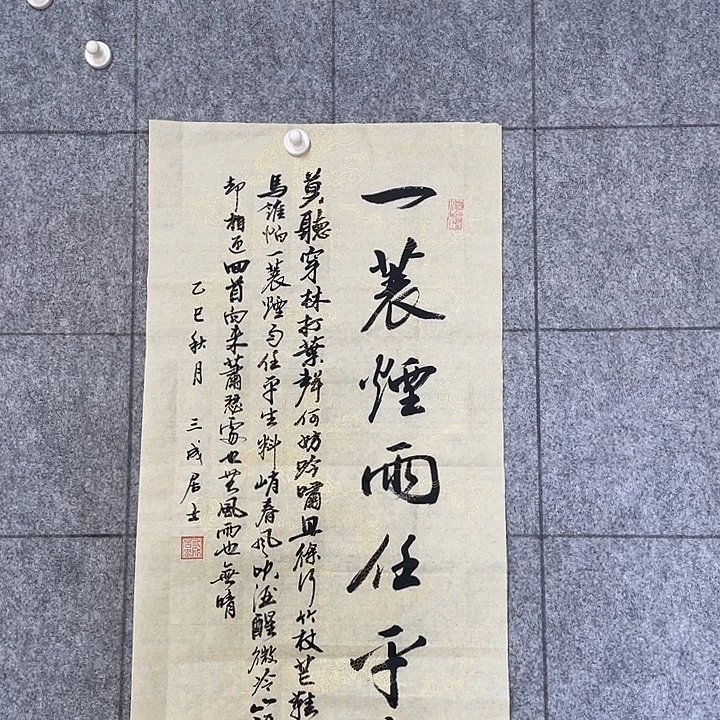 一蓑煙雨任平
莫聽穿林打葉聲何妨吟嘯且徐行竹杖芒鞋
馬誰怕一蓑煙雨任平生料峭春風吹酒醒微冷山
却相迎回首向来蕭瑟處也無風雨也無晴
乙巳秋月 三成居士